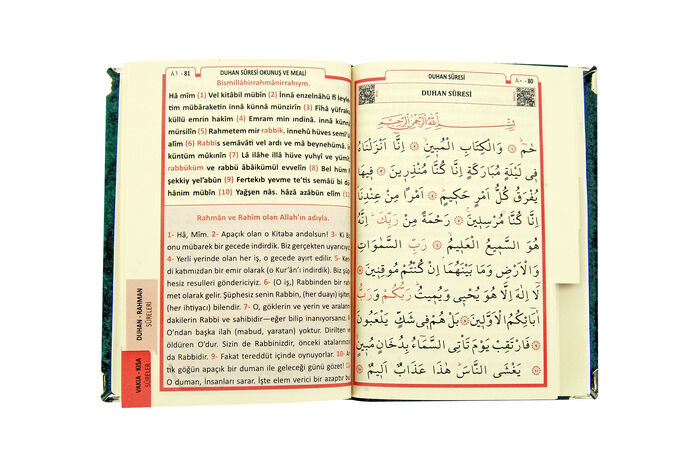 ٨١ - 81
DUHAN SÛRESİ OKUNUŞ VE MEALİ
Bismillâhirrahmânirrahıym.
Hâ mîm (1) Vel kitâbil mübîn (2) İnnâ enzelnâhü fî leyle
tim mübâraketin innâ künnâ münzirîn (3) Fîhâ yüfrak
küllü emrin hakîm (4) Emram min ındinâ, innâ künnâ
mürsilîn (5) Rahmetem mir rabbik, innehû hüves semî'ul
alîm (6) Rabbis semâvâti vel ardı ve mâ beynehümâ, in
küntüm mûkınîn (7) Lâ ilâhe illâ hüve yuhyî ve yümît,
rabbüküm ve rabbü âbâikümül evvelîn (8) Bel hüm fî
şekkiy yel'abûn (9) Fertekıb yevme te'tis semâü bi dü
hânim mübîn (10) Yağşen nâs. hâzâ azâbün elîm
Rahmân ve Rahîm olan Allah'ın adıyla.
1- Hâ, Mîm. 2- Apaçık olan o Kitaba andolsun! 3- Ki Biz
onu mübarek bir gecede indirdik. Biz gerçekten uyarıcıyız.
4- Yerli yerinde olan her iş, o gecede ayırt edilir. 5- Ken
di katımızdan bir emir olarak (o Kur'ân'ı indirdik). Biz şüp
hesiz resulleri göndericiyiz. 6- (O iş,) Rabbinden bir rah
met olarak gelir. Şüphesiz senin Rabbin, (her duayı) işiten
(her ihtiyacı) bilendir. 7- O, göklerin ve yerin ve araların
dakilerin Rabbi ve sahibidir—eğer bilip inanıyorsanız.
O'ndan başka ilah (mabud, yaratan) yoktur. Dirilten
öldüren O'dur. Sizin de Rabbinizdir, önceki atalarınızın
da Rabbidir. 9- Fakat tereddüt içinde oynuyorlar. 10- Ar
tık göğün apaçık bir duman ile geleceği günü gözet!
O duman, İnsanları sarar. İşte elem verici bir azaptır bu
DUHAN - RAHMAN
SÛRELERİ
VAKIA - KISA
SÛRELER
DUHAN SÛRESİ
٨٠ - 80
DUHAN SÛRESİ
بِسْمِ اللّٰهِ الرَّحْمٰنِ الرَّحِيمِ
حٰمٓ ۞ وَالْكِتَابِ الْمُبِينِ ۞ اِنَّٓا اَنْزَلْنَاهُ
فِى لَيْلَةٍ مُبَارَكَةٍ اِنَّا كُنَّا مُنْذِرِينَ ۞ فِيهَا
يُفْرَقُ كُلُّ اَمْرٍ حَكِيمٍ ۞ اَمْرًا مِنْ عِنْدِنَا
اِنَّا كُنَّا مُرْسِلِينَ ۞ رَحْمَةً مِنْ رَبِّكَ اِنَّهُ
هُوَ السَّمِيعُ الْعَلِيمُ ۞ رَبِّ السَّمٰوَاتِ
وَالْاَرْضِ وَمَا بَيْنَهُمَا اِنْ كُنْتُمْ مُوقِنِينَ ۞
لَٓا اِلٰهَ اِلَّا هُوَ يُحْيِى وَيُمِيتُ رَبُّكُمْ وَرَبُّ
اٰبَٓائِكُمُ الْاَوَّلِينَ ۞ بَلْ هُمْ فِى شَكٍّ يَلْعَبُونَ
۞ فَارْتَقِبْ يَوْمَ تَاْتِى السَّمَٓاءُ بِدُخَانٍ مُبِينٍ
۞ يَغْشَى النَّاسَ هٰذَا عَذَابٌ اَلِيمٌ ۞